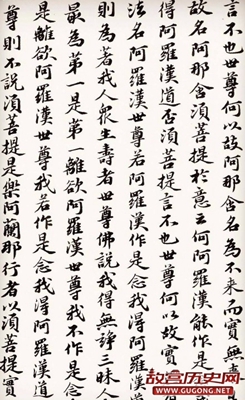 言不也世尊何以故阿那含名為不来而實無
故名阿那含須菩提於意云何阿羅漢能作是
得阿羅漢道否須菩提言不也世尊何以故實
法名阿羅漢世尊若阿羅漢作是念我得阿羅漢
則為著我人眾生壽者世尊佛說我得無諍三昧人
最為第一是第一離欲阿羅漢世尊我不作是念我
是離欲阿羅漢世尊我若作是念我得阿羅漢道
尊則不說須菩提是樂阿蘭那行者以須菩提實
故宫历史网
WWW.GUGONG.NET